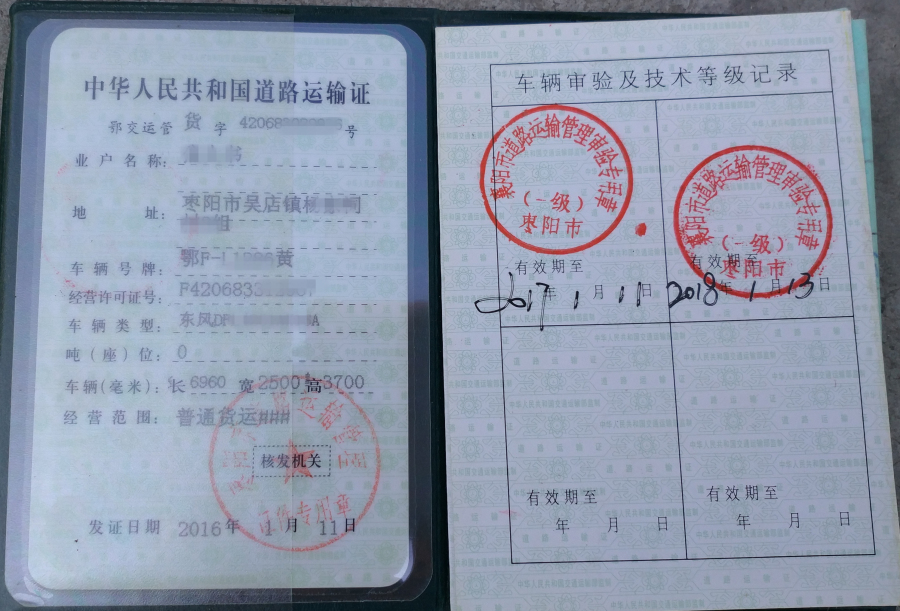 中华人民共和国道路运输证
鄂交运管 货 字 420683 号
业户名称：
地 址： 枣阳市吴店镇
组
车辆号牌： 鄂F-L 黄
经营许可证号： F42068333
车辆类型： 东风DF A
吨（座）位： 0
车辆(毫米)： 长 6960 宽 2500 高 3700
经营范围： 普通货运###
核发机关
证件专用章
发证日期 2016年 1月 11日
车辆审验及技术等级记录
襄阳市道路运输管理审验专用章
（一级）
枣阳市
有效期至
2017年 1月 11日
襄阳市道路运输管理审验专用章
（一级）
枣阳市
有效期至
2018年 1月 13日
有效期至
年 月 日
有效期至
年 月 日